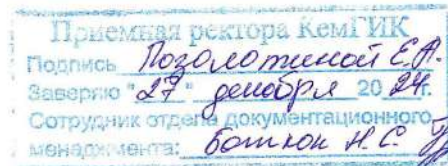 Приемная ректора КемГИК
Подпись Позолотиной Е.А.
Заверяю "27" декабря 2024г.
Сотрудник отдела документационного
менеджмента: Н.С.